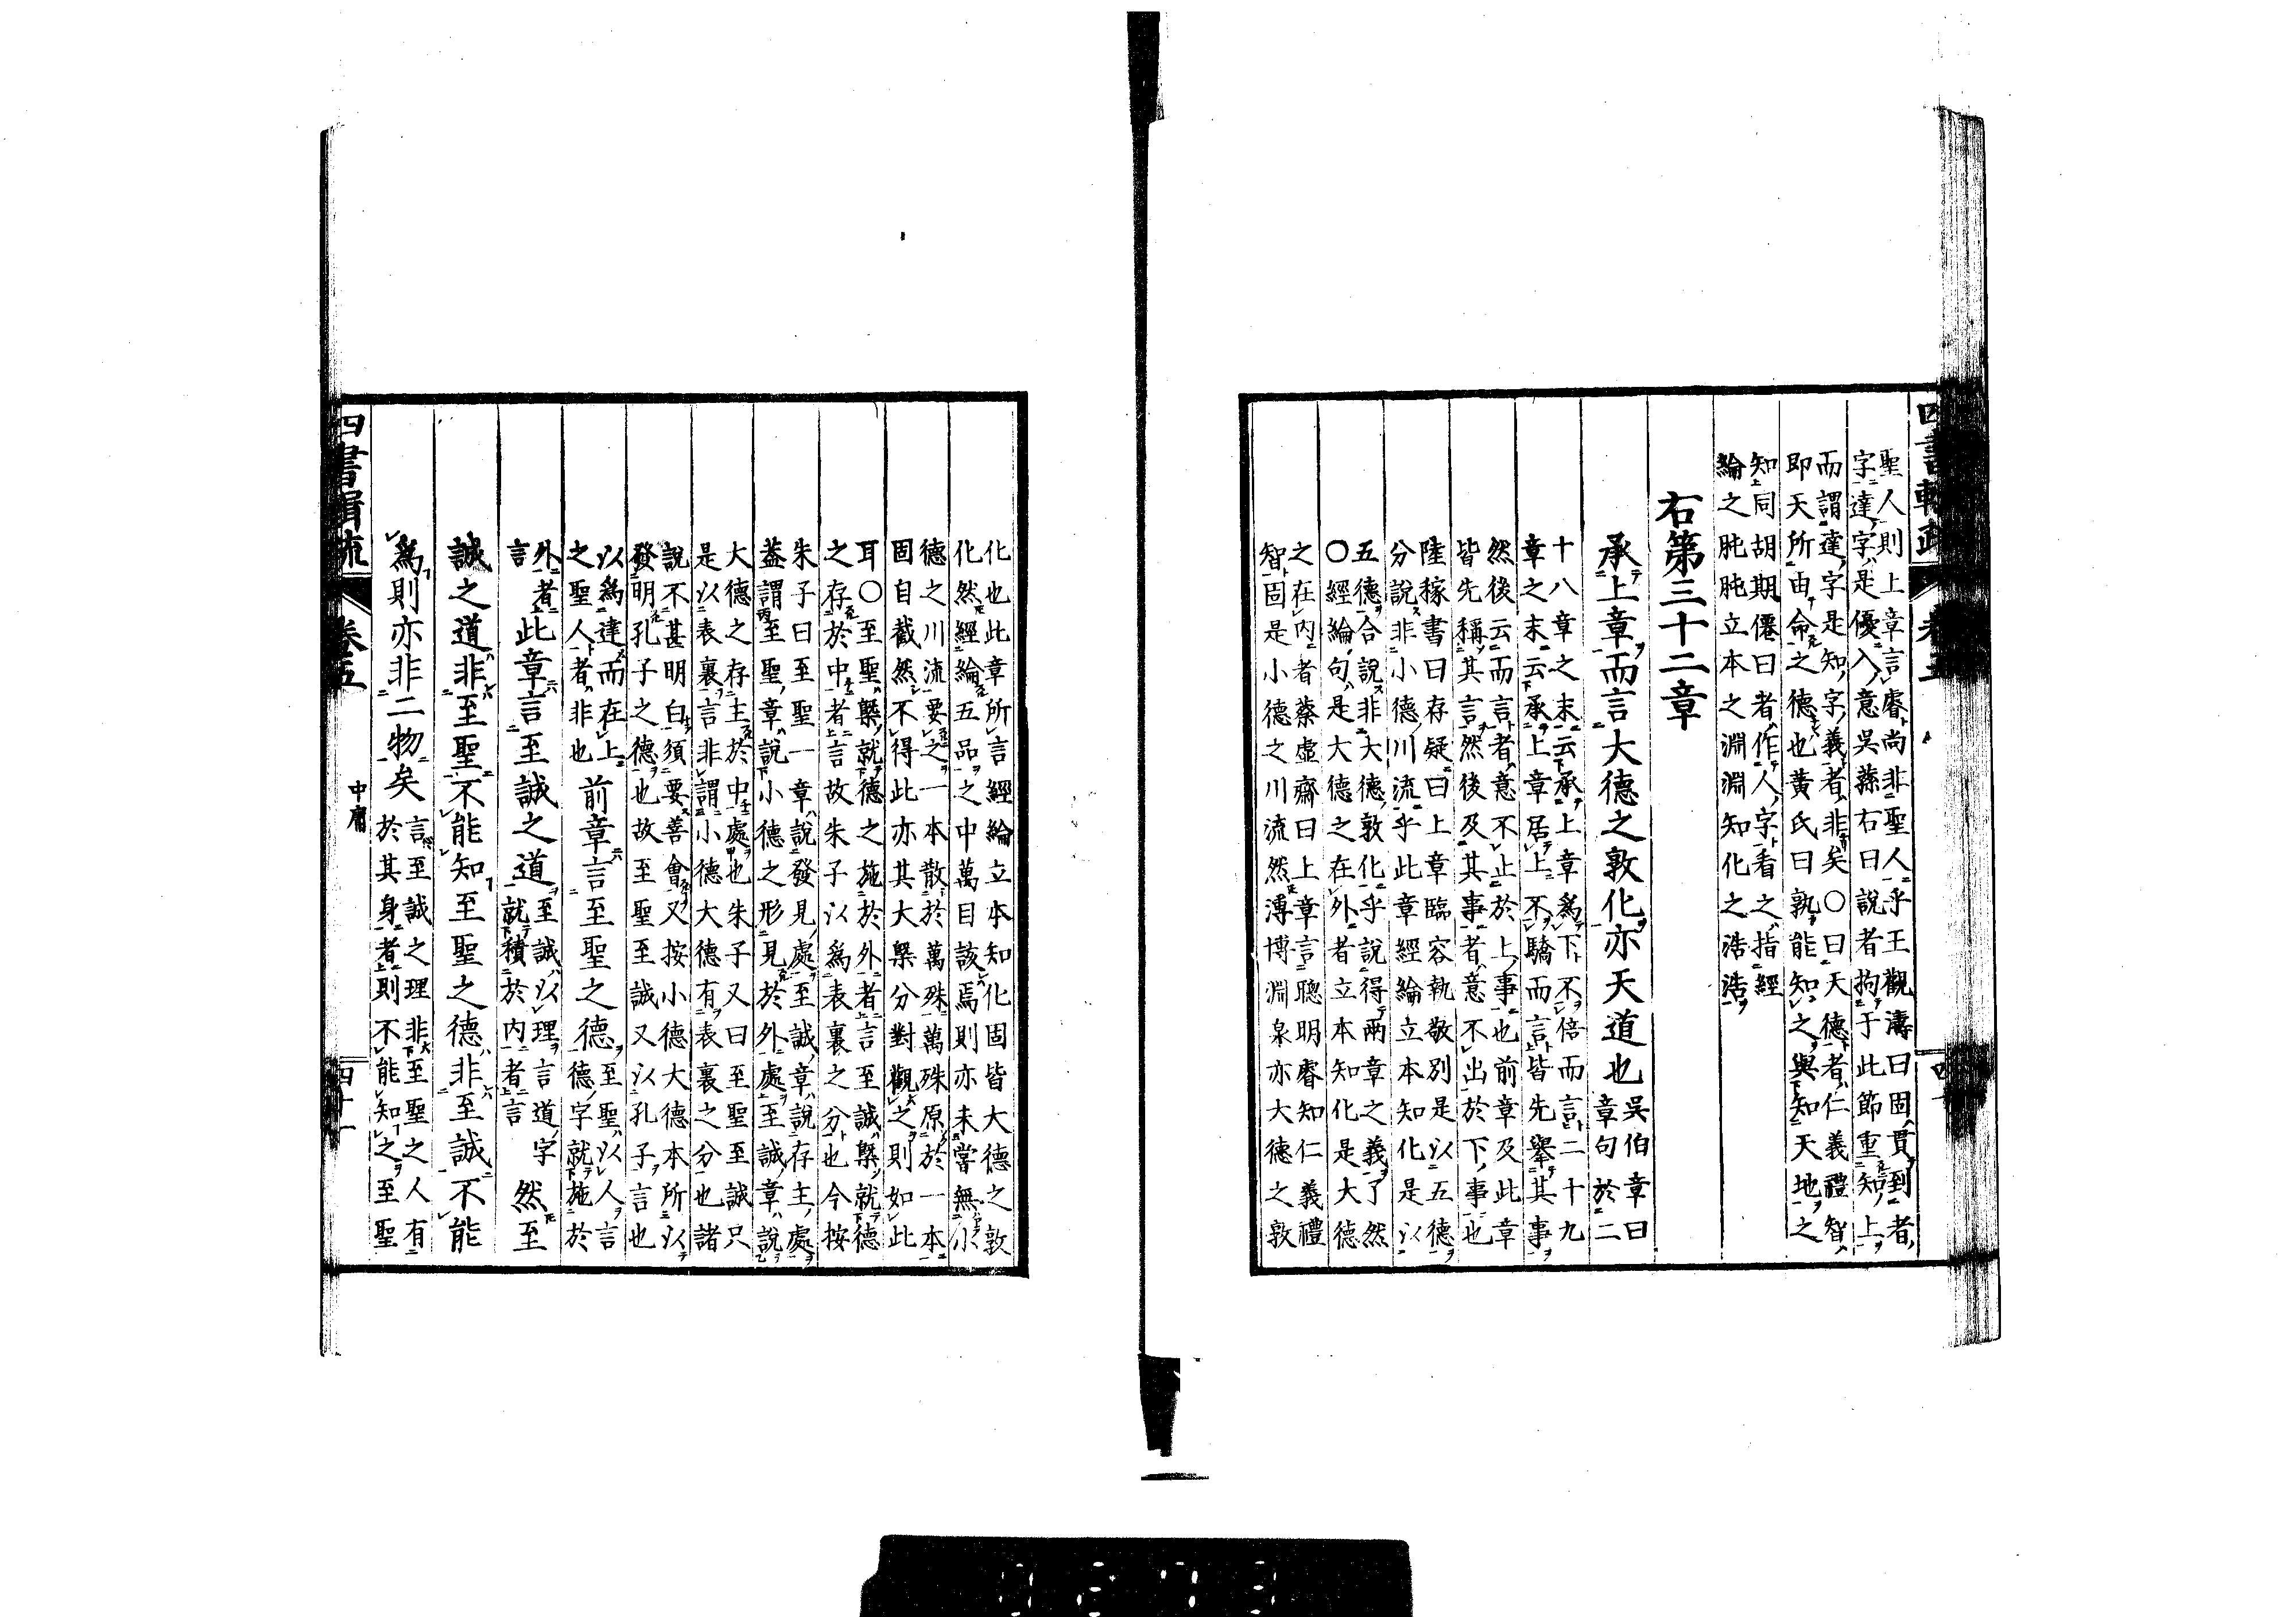 四書輯疏 卷五
聖人則上章言睿尚非聖人乎王觀濤曰固貫到者
字達字是優入意吳蓀右曰說者拘于此節重知上
而謂達字是知字義者非矣○曰天德者仁義禮智
即天所由命之德也黃氏曰孰能知之與知天地之
知同胡期僊曰者作人字看之指經
綸之肫肫立本之淵淵知化之浩浩
右第三十二章
承上章而言大德之敦化亦天道也
吳伯章曰
章句於二
十八章之末云承上章爲下不倍而言二十九
章之末云承上章居上不驕而言皆先舉其事
然後云而言者意不止於上事也前章及此章
皆先稱其言然後及其事者意不出於下事也
陸稼書曰存疑曰上章臨容執敬別是以五德
分說非小德川流乎此章經綸立本知化是以
五德合說非大德敦化乎說得兩章之義了然
○經綸句是大德之在外者立本知化是大德
之在內者蔡虛齋曰上章言聰明睿知仁義禮
智固是小德之川流然溥博淵泉亦大德之敦
化也此章所言經綸立本知化固皆大德之敦
化然經綸五品之中萬目該焉則亦未嘗無小
德之川流要之一本散於萬殊萬殊原於一本
固自截然不得此亦其大槩分對觀之則如此
耳○至聖槩就德之施於外者言至誠槩就德
之存於中者言故朱子以爲表裏之分也今按
朱子曰至聖一章說發見處至誠章說存主處
蓋謂至聖章說小德之形見於外處至誠章說
大德之存主於中處也朱子又曰至聖至誠只
是以表裏言非謂小德大德有表裏之分也諸
說不甚明白須要善會又按小德大德本所以
發明孔子之德也故至聖至誠又以孔子言也
以爲達而在上
之聖人者非也
前章言至聖之德
至聖以人言
德字就施於
外者
言
此章言至誠之道
至誠以理言道字
就積於內者言
然至
誠之道非至聖不能知至聖之德非至誠不能
爲則亦非二物矣
言至誠之理非至聖之人有
於其身者則不能知之至聖
四書輯疏 卷五 中庸 四十一